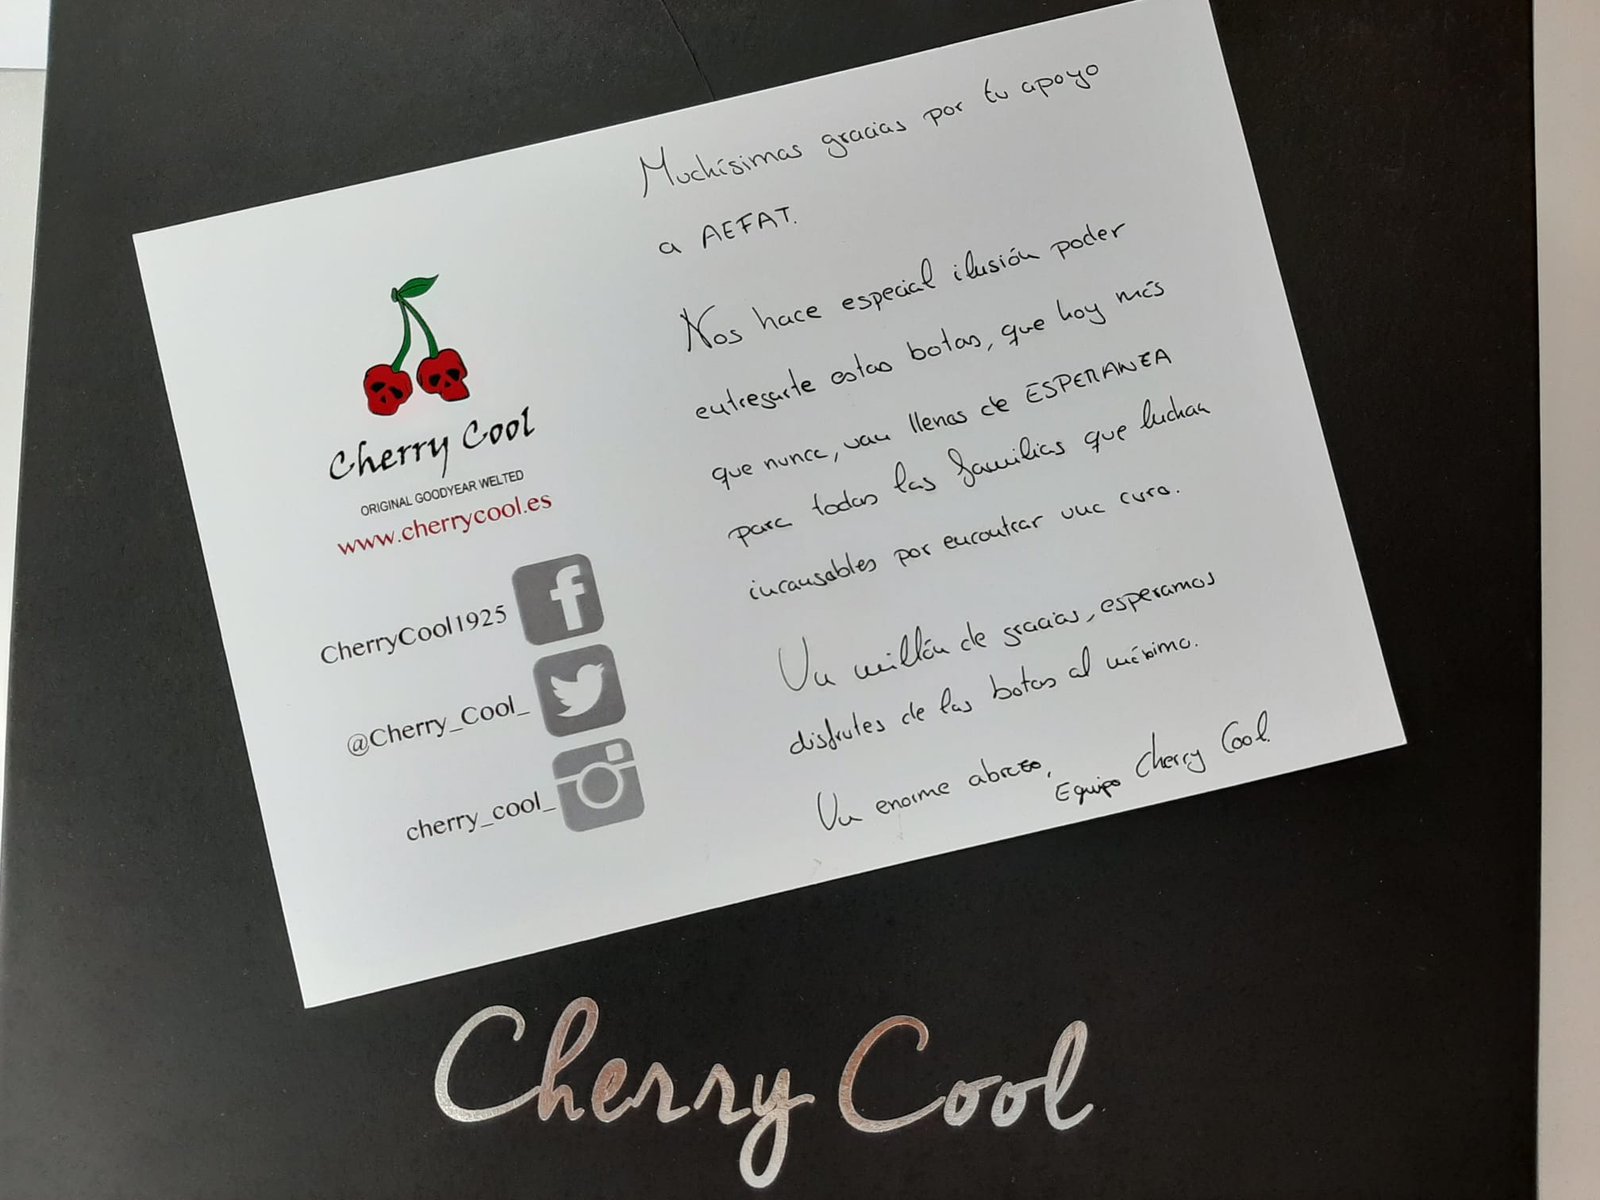 Cherry Cool
ORIGINAL GOODYEAR WELTED
www.cherrycool.es
CherryCool1925
@Cherry_Cool_
cherry_cool_
Muchísimas gracias por tu apoyo
a AEFAT.
Nos hace especial ilusión poder
entregarte estas botas, que hoy más
que nunca, van llenas de ESPERANZA
para todas las familias que luchan
incansables por encontrar una cura.
Un millón de gracias, esperamos
disfrutes de las botas al máximo.
Un enorme abrazo,
Equipo Cherry Cool.
Cherry Cool